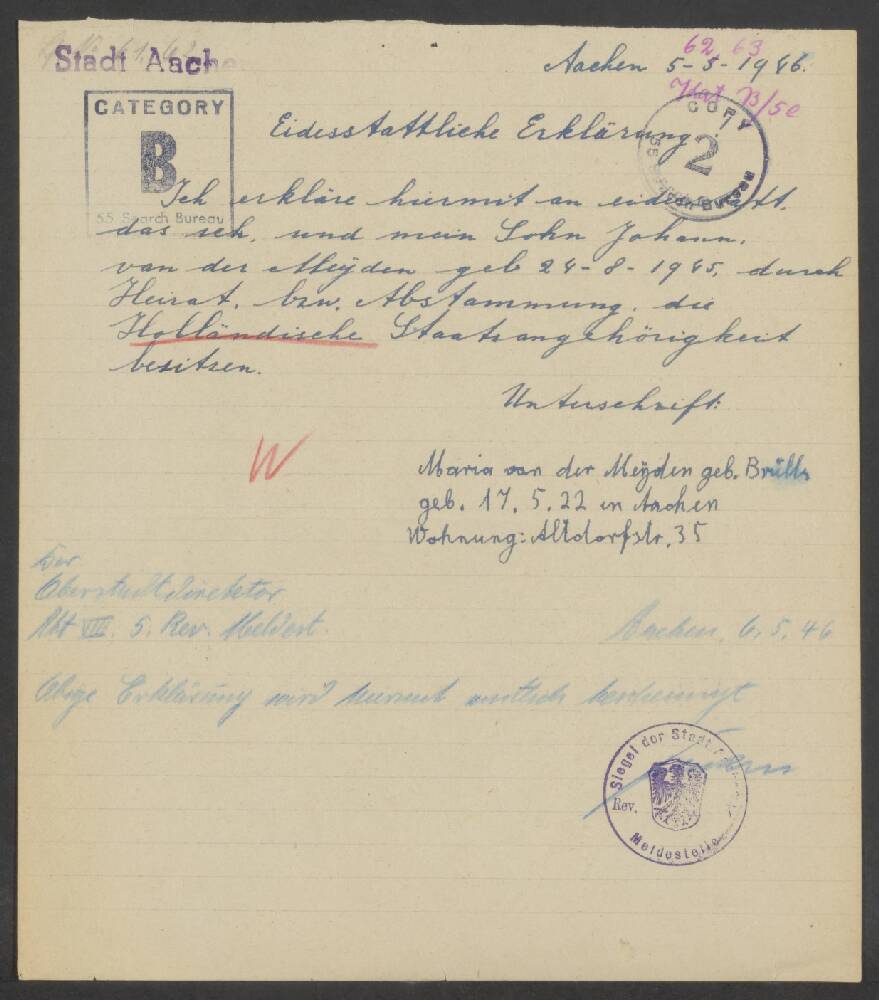 Stadt Aachen
Aachen 5-5-1946.
62 63
Kat B/5e
CATEGORY
B
55 Search Bureau
COPY
2
Eidesstattliche Erklärung
Ich erkläre hiermit an eidesstatt.
das ich, und mein Sohn Johann,
van der Meÿden geb 24-8-1945, durch
Heirat. bzw. Abstammung. die
Holländische Staatsangehörigkeit
besitzen.
Unterschrift:
W
Maria van der Meÿden geb. Brülls
geb. 17.5.22 in Aachen
Wohnung: Altdorfstr. 35
Der
Oberstadtdirektor
Abt VIII. 5. Rev. Meldest.
Aachen, 6.5.46
Obige Erklärung wird hiermit amtlich bescheinigt
Siegel der Stadt
Rev.
Meldestelle